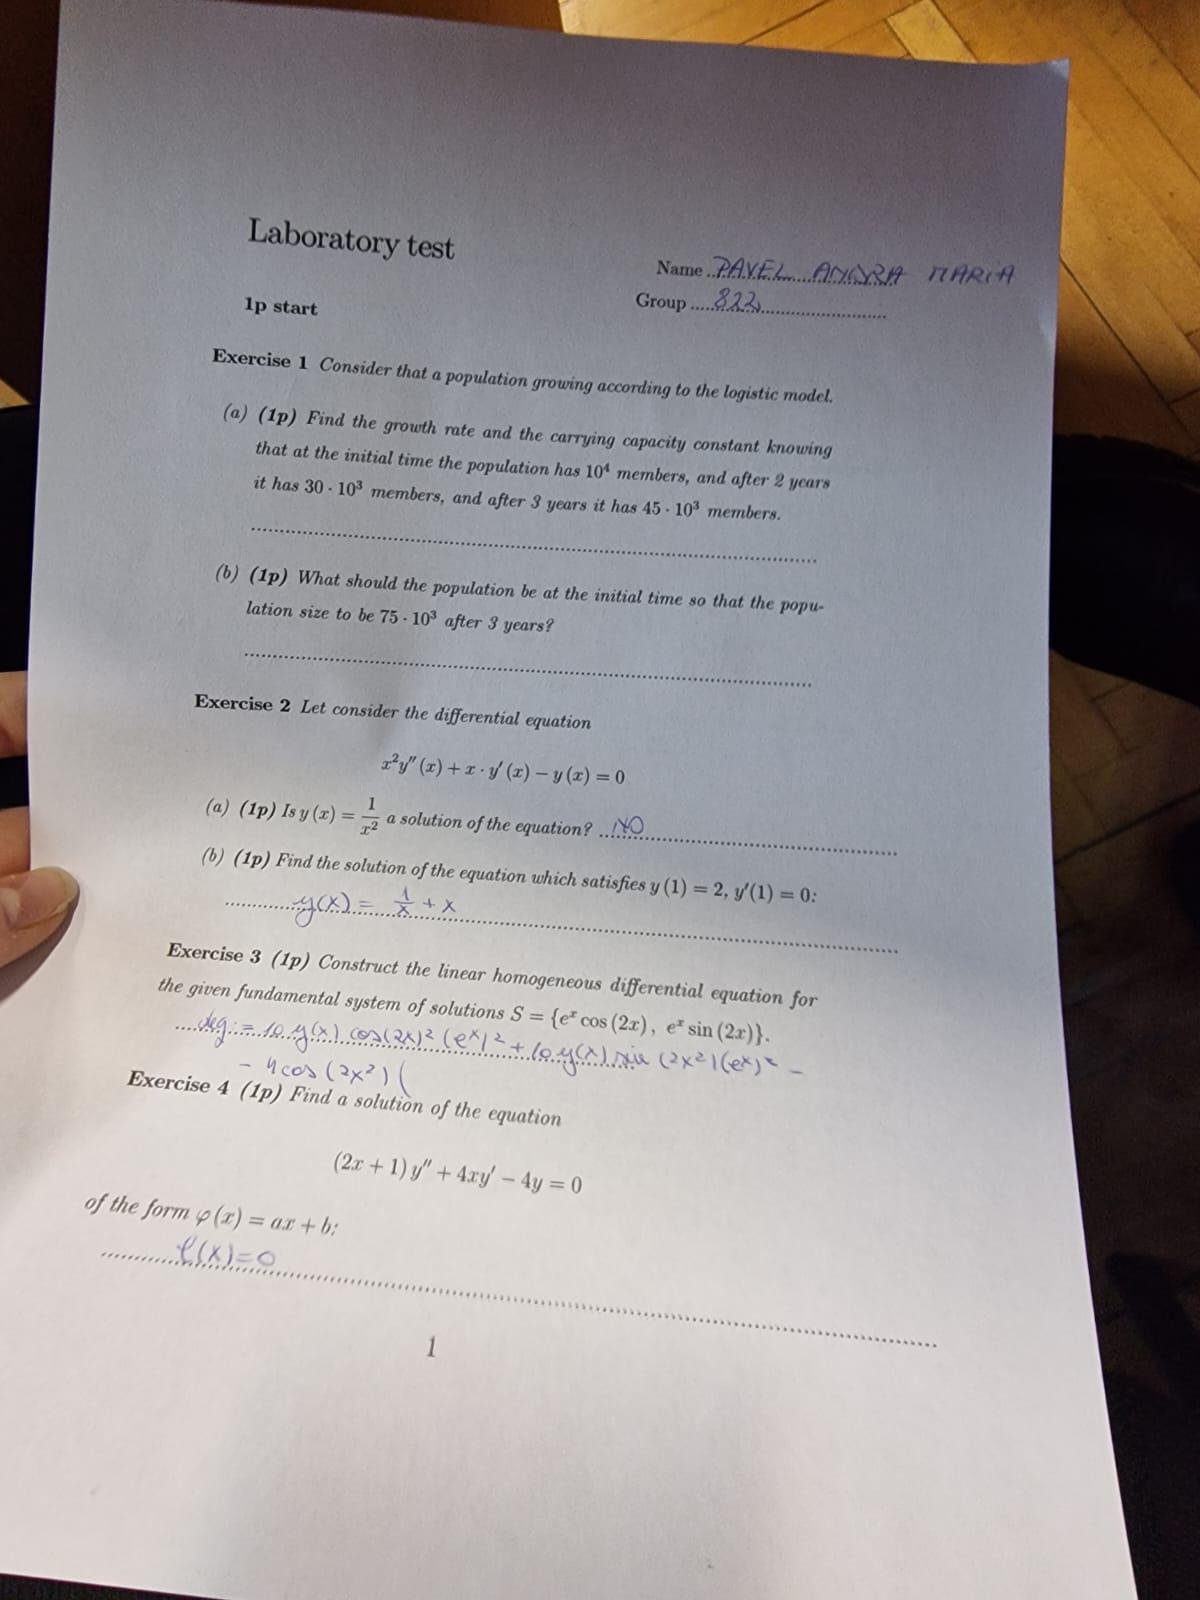 Laboratory test
Name ..PAVEL ANDRA MARIA
Group ....822
1p start
Exercise 1 Consider that a population growing according to the logistic model.
(a) (1p) Find the growth rate and the carrying capacity constant knowing
that at the initial time the population has 10⁴ members, and after 2 years
it has 30 · 10³ members, and after 3 years it has 45 · 10³ members.
(b) (1p) What should the population be at the initial time so that the popu-
lation size to be 75 · 10³ after 3 years?
Exercise 2 Let consider the differential equation
x²y″ (x) + x · y′ (x) − y (x) = 0
(a) (1p) Is y (x) = 1/x² a solution of the equation? NO
(b) (1p) Find the solution of the equation which satisfies y (1) = 2, y′(1) = 0:
y(x) = 1/x + x
Exercise 3 (1p) Construct the linear homogeneous differential equation for
the given fundamental system of solutions S = {eˣ cos (2x) , eˣ sin (2x)}.
deg := 10 y(x) cos(2x)² (eˣ)² + 10 y(x) sin (2x²) (eˣ)² −
− 4 cos (2x²) (
Exercise 4 (1p) Find a solution of the equation
(2x + 1) y″ + 4xy′ − 4y = 0
of the form φ (x) = ax + b:
φ(x)=0
1